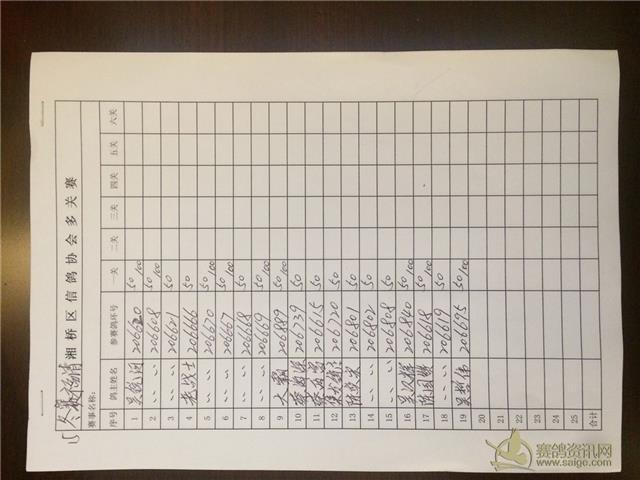 湘桥区信鸽协会多关赛
赛事名称:
序号 鸽主姓名 参赛鸽环号 一关 二关 三关 四关 五关 六关
1 206620 50/100
2 〃 〃 206608 50/100
3 〃 〃 206621 50
4 老战士 206666 50
5 〃 〃 206670 50/100
6 〃 〃 206667 50/100
7 〃 〃 206668 50
8 〃 〃 206669 50/100
9 大鹏 206889 50/100
10 206739 50
11 206615 50
12 206720 50
13 206801 50
14 〃 〃 206802 50
15 〃 〃 206808 50
16 吴汉辉 206840 50/100
17 陈国雄 206618 50/100
18 〃 〃 206619 50
19 吴哲伟 206695 50/100
20
21
22
23
24
25
合计
赛鸽资讯网
www.saige.com